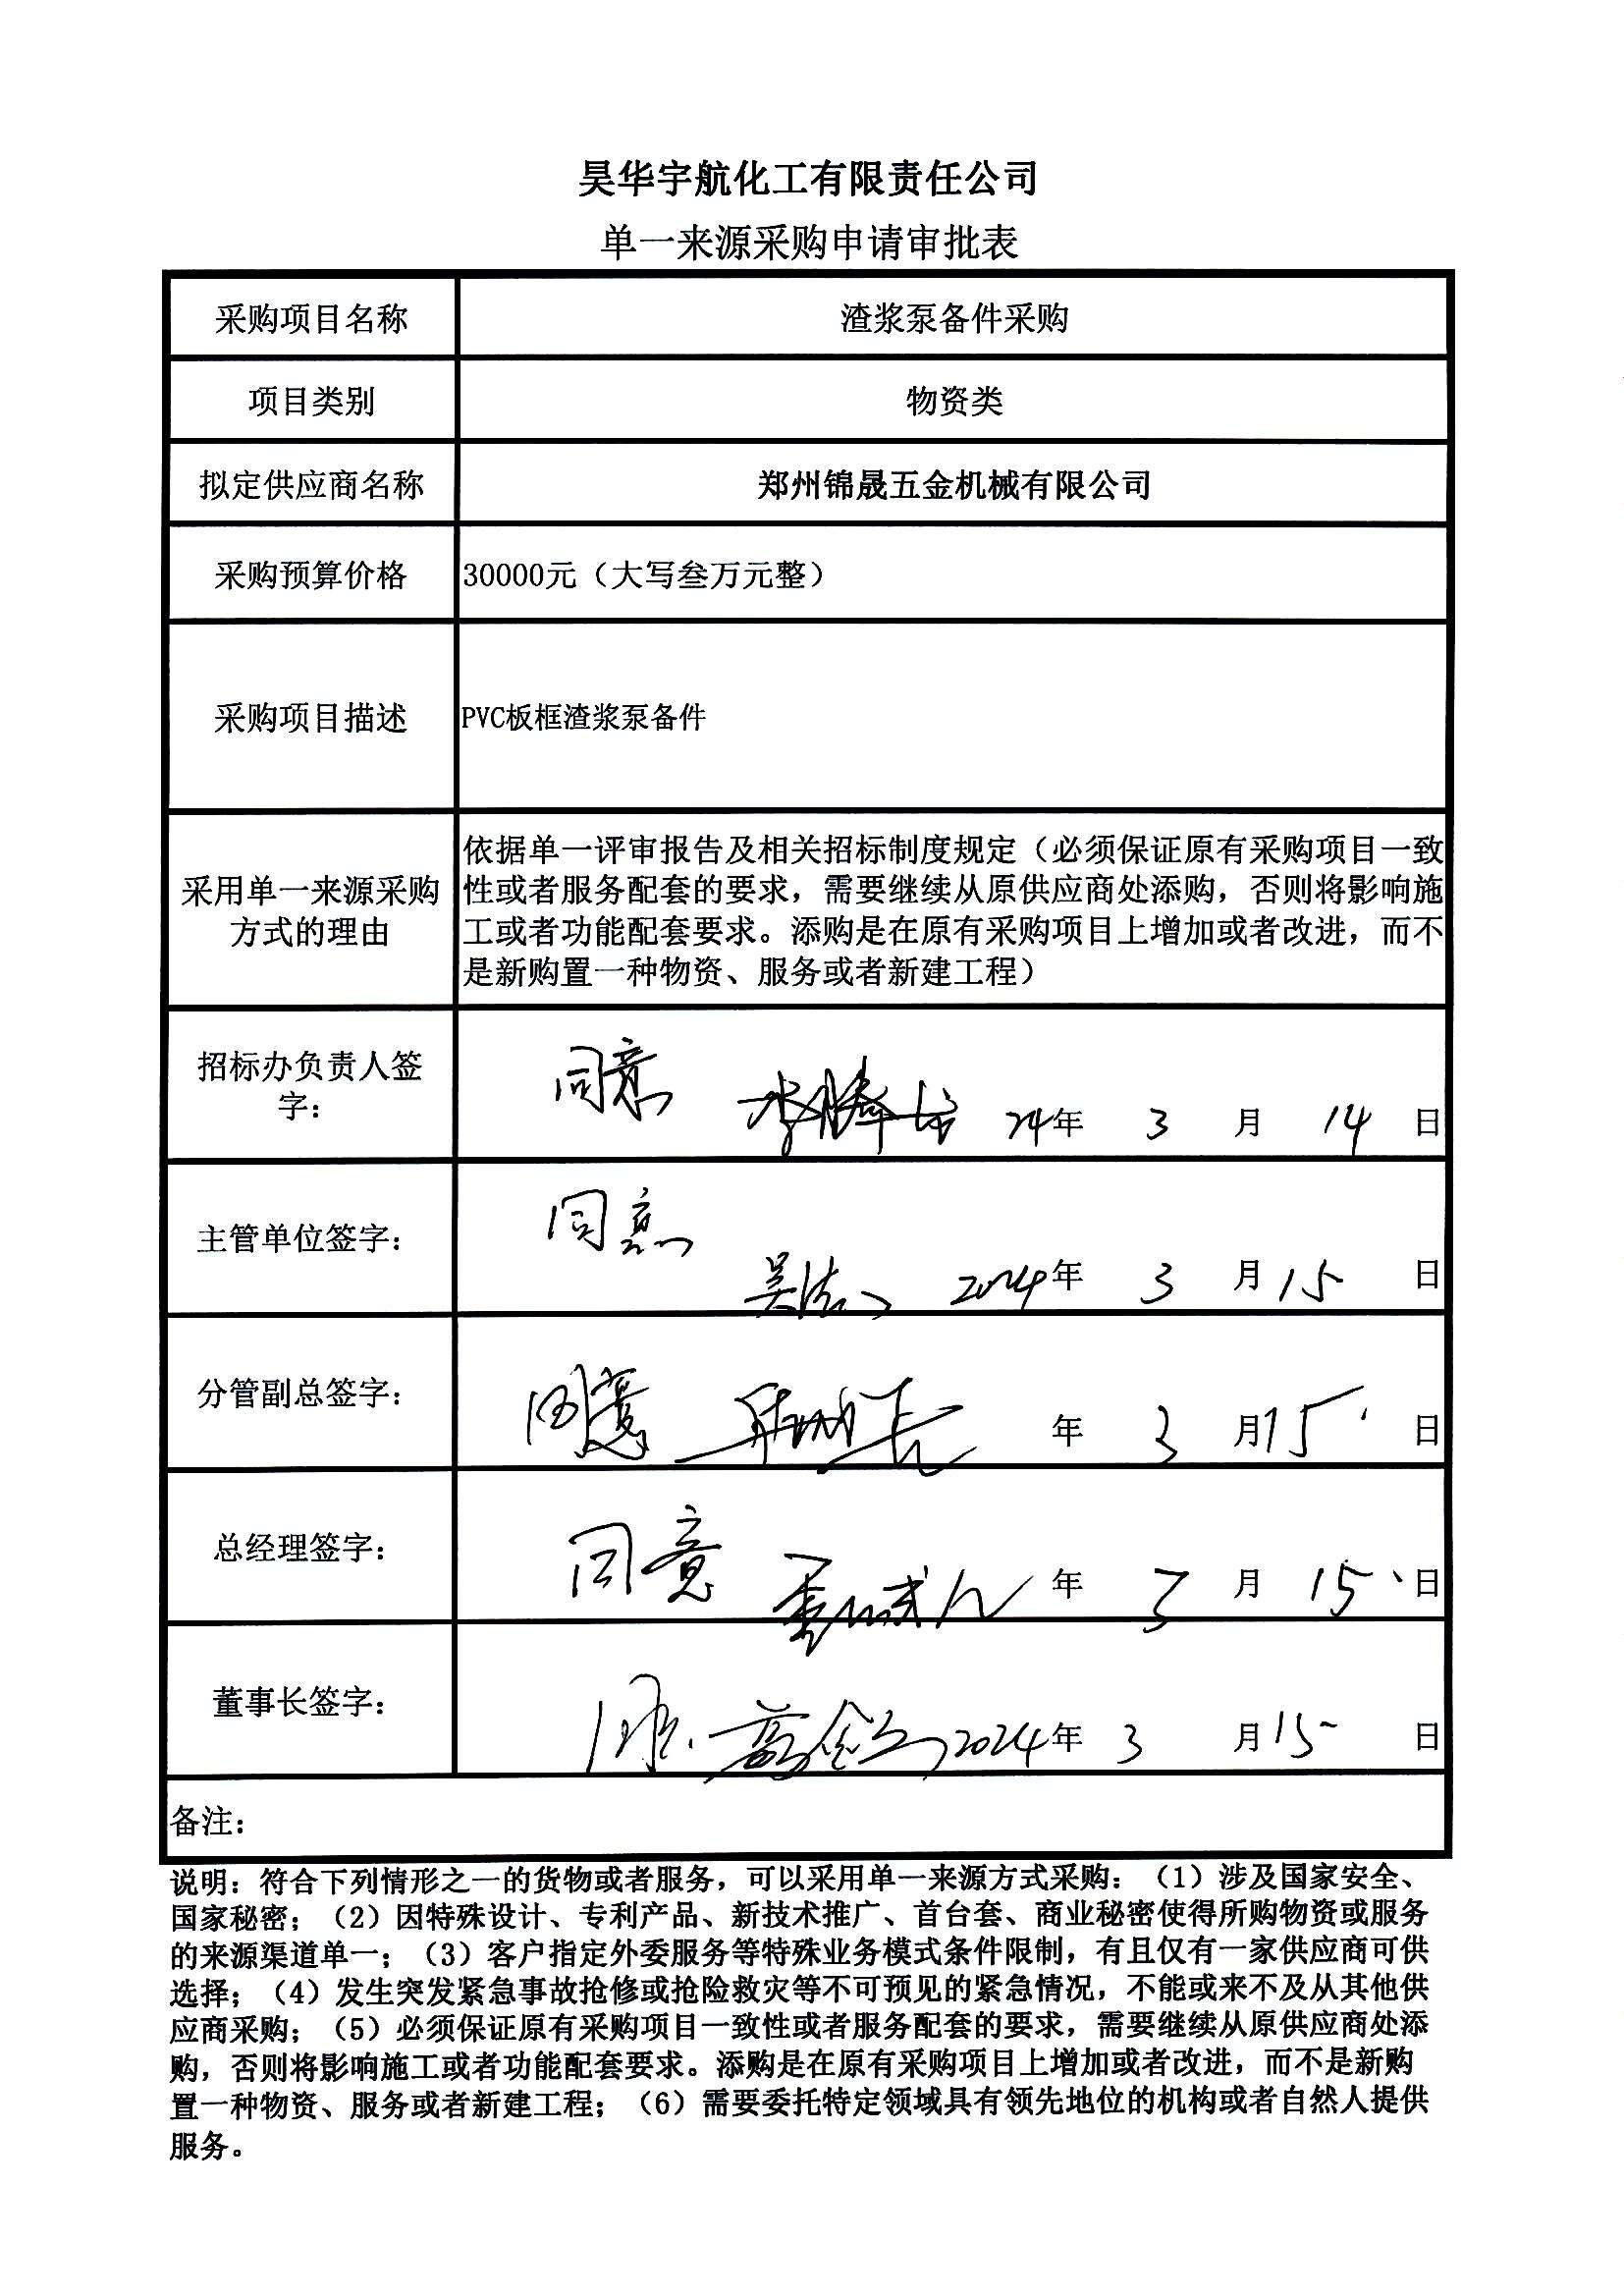 昊华宇航化工有限责任公司
单一来源采购申请审批表
采购项目名称 渣浆泵备件采购
项目类别 物资类
拟定供应商名称 郑州锦晟五金机械有限公司
采购预算价格 30000元（大写叁万元整）
采购项目描述 PVC板框渣浆泵备件
采用单一来源采购
方式的理由
依据单一评审报告及相关招标制度规定（必须保证原有采购项目一致
性或者服务配套的要求，需要继续从原供应商处添购，否则将影响施
工或者功能配套要求。添购是在原有采购项目上增加或者改进，而不
是新购置一种物资、服务或者新建工程）
招标办负责人签
字：
同意
24年 3 月 14 日
主管单位签字：
同意
2024年 3 月 15 日
分管副总签字：
同意 年 3 月 15 日
总经理签字：
同意 年 3 月 15 日
董事长签字：
2024年 3 月 15 日
备注：
说明：符合下列情形之一的货物或者服务，可以采用单一来源方式采购：（1）涉及国家安全、
国家秘密；（2）因特殊设计、专利产品、新技术推广、首台套、商业秘密使得所购物资或服务
的来源渠道单一；（3）客户指定外委服务等特殊业务模式条件限制，有且仅有一家供应商可供
选择；（4）发生突发紧急事故抢修或抢险救灾等不可预见的紧急情况，不能或来不及从其他供
应商采购；（5）必须保证原有采购项目一致性或者服务配套的要求，需要继续从原供应商处添
购，否则将影响施工或者功能配套要求。添购是在原有采购项目上增加或者改进，而不是新购
置一种物资、服务或者新建工程；（6）需要委托特定领域具有领先地位的机构或者自然人提供
服务。